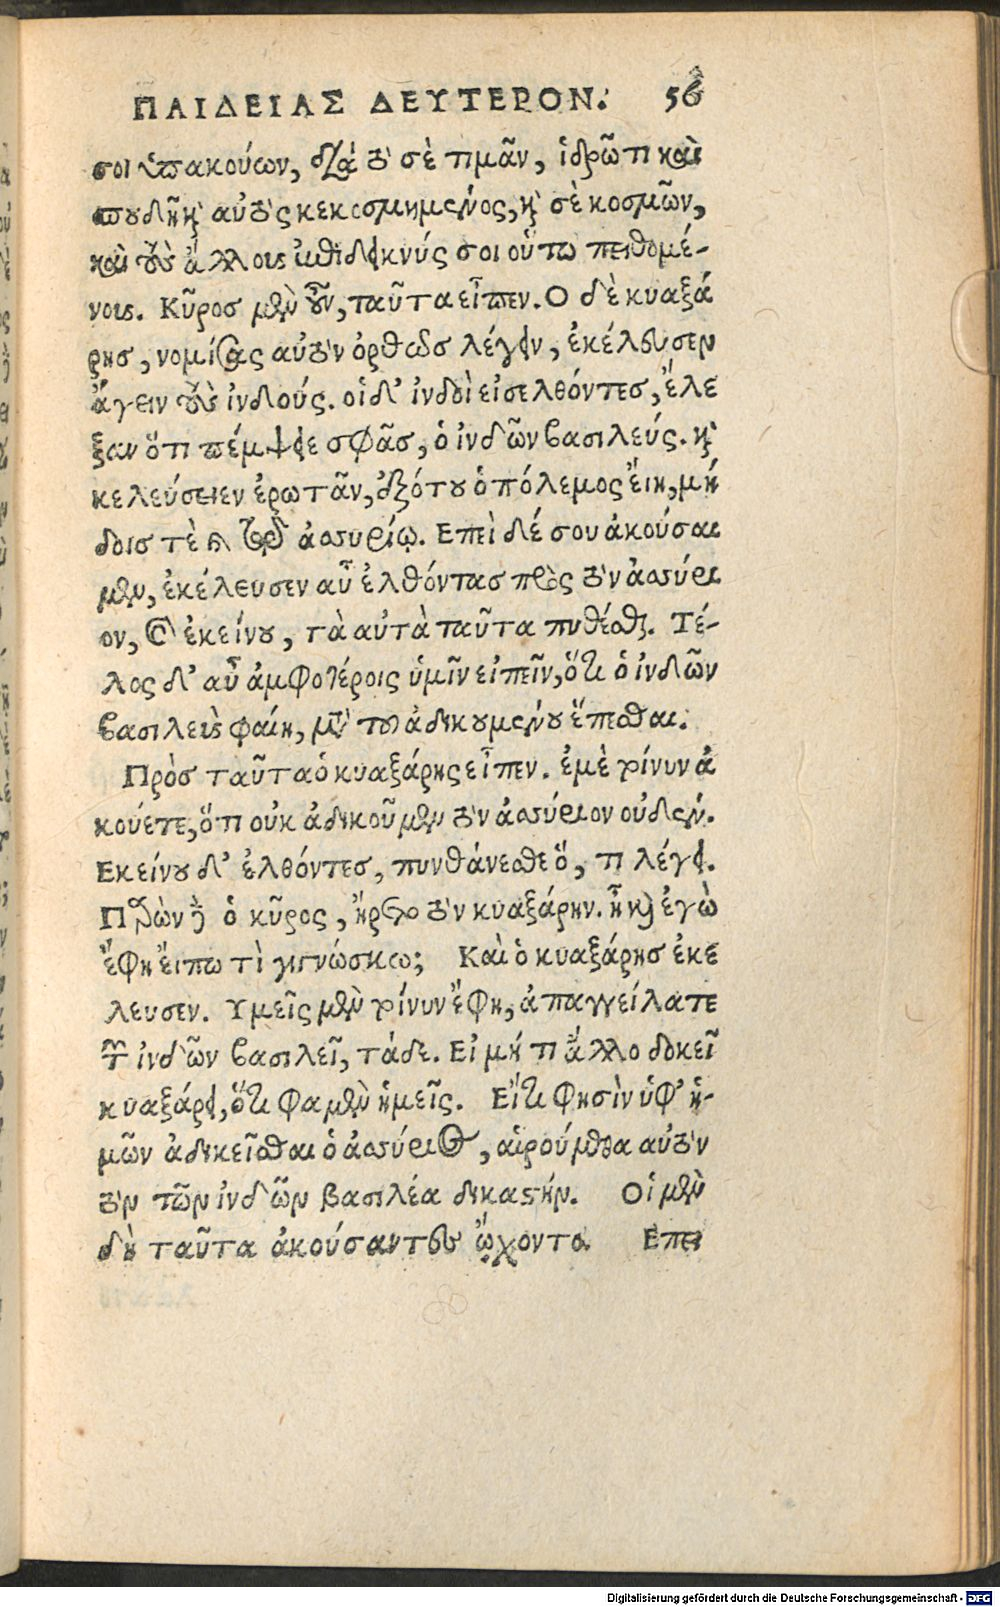 ΠΑΙΔΕΙΑΣ ΔΕΥΤΕΡΟΝ. 56
σοι ὑπακούων, διὰ τὸ σὲ τιμᾶν, ἱδρῶτι καὶ
σπουδῇ καὶ αὐτὸς κεκοσμημένος, καὶ σὲ κοσμῶν,
καὶ τοὺς ἄλλους ἐπιδεικνύς σοι οὕτω πειθομέ-
νους. Κῦρος μὲν οὖν, ταῦτα εἶπεν. Ο δὲ κυαξά
ρης, νομίσας αὐτὸν ὀρθῶς λέγειν, ἐκέλευσεν
ἄγειν τοὺς ἰνδούς. οἱ δ' ἰνδοὶ εἰσελθόντες, ἔλε
ξαν ὅτι πέμψειε σφᾶς, ὁ ἰνδῶν βασιλεύς. καὶ
κελεύσειεν ἐρωτᾶν, ἐξ ὅτου ὁ πόλεμος εἴη, μή
δοις τὲ καὶ τῷ ἀσσυρίῳ. Επεὶ δέ σου ἀκούσαι
μεν, ἐκέλευσεν αὖ ἐλθόντας πρὸς τὸν ἀσσύρι
ον, καὶ ἐκείνου, τὰ αὐτὰ ταῦτα πυθέσθαι. Τέ-
λος δ' αὖ ἀμφοτέροις ὑμῖν εἰπεῖν, ὅτι ὁ ἰνδῶν
βασιλεὺς φαίη, μετὰ τοῦ ἀδικουμένου ἕπεσθαι.
Πρὸς ταῦτα ὁ κυαξάρης εἶπεν. ἐμὲ τοίνυν ἀ
κούετε, ὅτι οὐκ ἀδικοῦμεν τὸν ἀσσύριον οὐδέν.
Εκείνου δ' ἐλθόντες, πυνθάνεσθε ὅ, τι λέγει.
Παρὼν δὲ ὁ κῦρος, ἤρετο τὸν κυαξάρην. ἦ καὶ ἐγὼ
ἔφη εἴπω τὶ γιγνώσκω; Καὶ ὁ κυαξάρης ἐκε
λευσεν. Υμεῖς μὲν τοίνυν ἔφη, ἀπαγγείλατε
τῷ ἰνδῶν βασιλεῖ, τάδε. Εἰ μή τι ἄλλο δοκεῖ
κυαξάρει, ὅτι φαμὲν ἡμεῖς. Εἴ τι φησὶν ὑφ' ἡ-
μῶν ἀδικεῖσθαι ὁ ἀσσύριος, αἱρούμεθα αὐτὸν
τὸν τῶν ἰνδῶν βασιλέα δικαστήν. Οἱ μὲν
δὴ ταῦτα ἀκούσαντες ᾤχοντο. Επεὶ
Digitalisierung gefördert durch die Deutsche Forschungsgemeinschaft - DFG